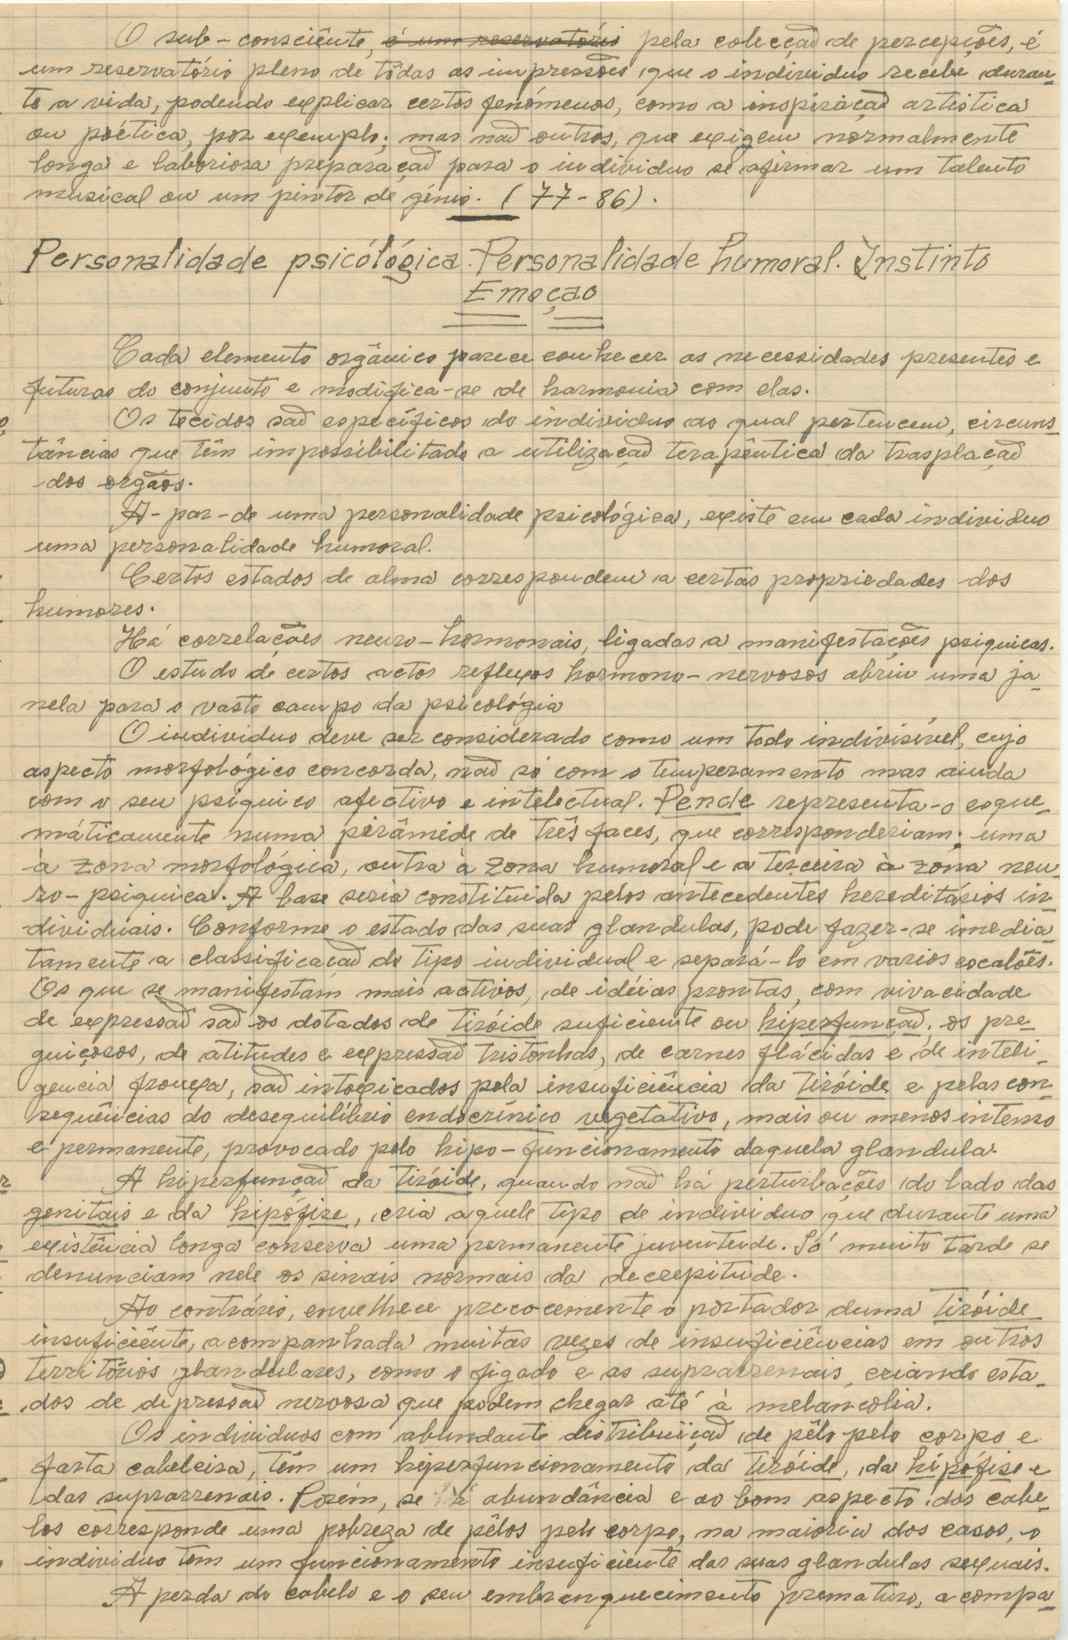 O sub-consciênte, é um reservatório pela colecção de percepções, é
um reservatório pleno de tôdas as impressões que o individuo recebe duran-
te a vida, podendo explicar certos fenómenos, como a inspiração artistica
ou poética, por exemplo; mas não outros, que exigem normalmente
longa e laboriosa preparação para o individuo se afirmar um talento
musical ou um pintor de génio. (77-86).
Personalidade psicológica. Personalidade humoral. Instinto
Emoçao
Cada elemento orgânico parece conhecer as necessidades presentes e
futuras do conjunto e modifica-se de harmonia com elas.
Os tecidos são específicos do individuo ao qual pertencem, circuns-
tâncias que têm impossibilitado a utilização terapêutica da trasplação
dos orgãos.
A-par-de uma personalidade psicológica, existe em cada individuo
uma personalidade humoral.
Certos estados de alma correspondem a certas propriedades dos
humores.
Há correlações neuro-hormonais, ligadas a manifestações psiquicas.
O estudo de certos actos reflexos hormono-nervosos abriu uma ja-
nela para o vasto campo da psicológia
O individuo deve ser considerado como um todo indivisível, cujo
aspecto morfológico concorda, não só com o temperamento mas ainda
com o seu psiquico afectivo e intelectual. Pende representa-o esque-
máticamente numa pirâmide de três faces, que corresponderiam: uma
à zona morfológica, outra à zona humoral e a terceira à zona neu-
ro-psiquica. A base seria constituida pelos antecedentes hereditários in-
dividuais. Conforme o estado das suas glandulas, pode fazer-se imedia-
tamente a classificação do tipo individual e separá-lo em varios escalões.
Os que se manifestam mais activos, de idéias prontas, com vivacidade
de expressão são os dotados de tiróide suficiente ou hiperfunção. os pre-
guiçosos, de atitudes e expressão tristonhas, de carnes flácidas e de inteli-
gencia frouxa, são intoxicados pela insuficiência da tiróide e pelas con-
sequências do desequilíbrio endocrínico vegetativo, mais ou menos intenso
e permanente, provocado pelo hipo-funcionamento daquela glandula.
A hiperfunção da tiróide, quando não há perturbações do lado das
genitais e da hipófise, cria aquele tipo de individuo que durante uma
existência longa conserva uma permanente juventude. Só muito tarde se
denunciam nele os sinais normais da decrepitude.
Ao contrário, envelhece precocemente o portador duma tiróide
insuficiênte, acompanhada muitas vezes de insuficiências em outros
territórios glandulares, como o figado e as suprarrenais, criando esta-
dos de depressão nervosa que podem chegar até à melancolia.
Os individuos com abundante distribuïção de pêlo pelo corpo e
farta cabeleira, têm um hiperfuncionamento da tiróide, da hipófise e
das suprarrenais. Porém, se à abundância e ao bom aspecto dos cabe-
los corresponde uma pobreza de pêlos pelo corpo, na maioria dos casos, o
individuo tem um funcionamento insuficiente das suas glandulas sexuais.
A perda do cabelo e o seu embranquecimento prematuro, acompa-